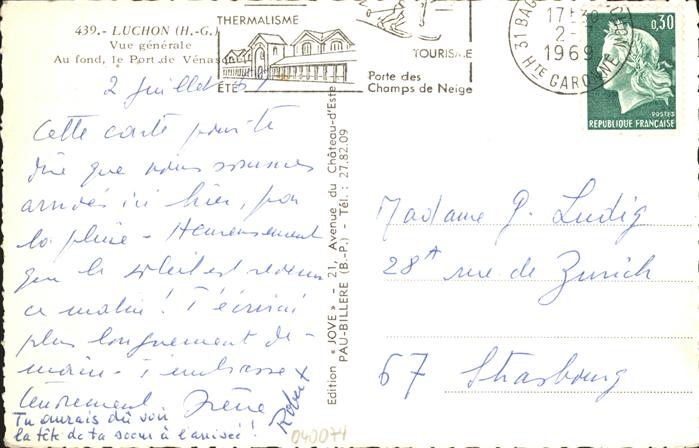 439.- LUCHON (H.-G.)
Vue générale
Au fond, le Port de Vénas
2 Juillet
Cette carte pour te
dire que nous sommes
arrivés ici hier, par
la pluie - Heureusement
que le soleil est revenu
ce matin! T'écrirai
plus longuement de-
main - T'embrasse
tendrement Irène
Robert
Tu aurais dû voir
la tête de ta soeur à l'arrivée!
040074
Edition « JOVE » - 21, Avenue du Château-d'Este
PAU-BILLERE (B.-P.) - Tél. : 27.82.09
THERMALISME
ÉTÉ
TOURISME
Porte des
Champs de Neige
31 BAG
17H30
2-
1969
HTE GARONNE
0,30
POSTES
REPUBLIQUE FRANÇAISE
Madame P. Ludig
28A rue de Zurich
67 Strasbourg